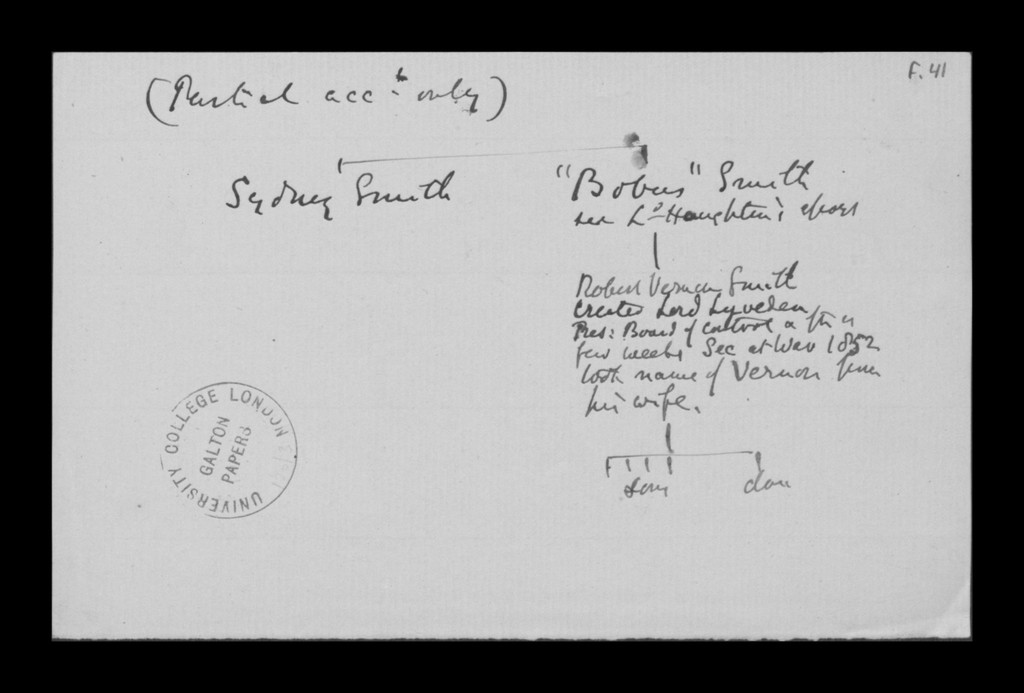 F. 41
(Partial acct only)
Sydney Smith
"Bobus" Smith
see Ld Houghton's
Robert Vernon Smith
Created Lord Lyveden
Pres: Board of Control
few weeks Sec at War 1852
took name of Vernon from
his wife.
sons dau
UNIVERSITY COLLEGE LONDON
GALTON
PAPERS